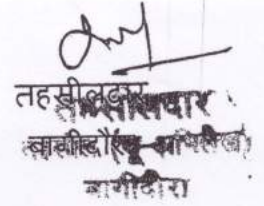 तहसीलदार
तहसीलदार
बागीदौरा
(भू-अभिलेख)
बागीदौरा